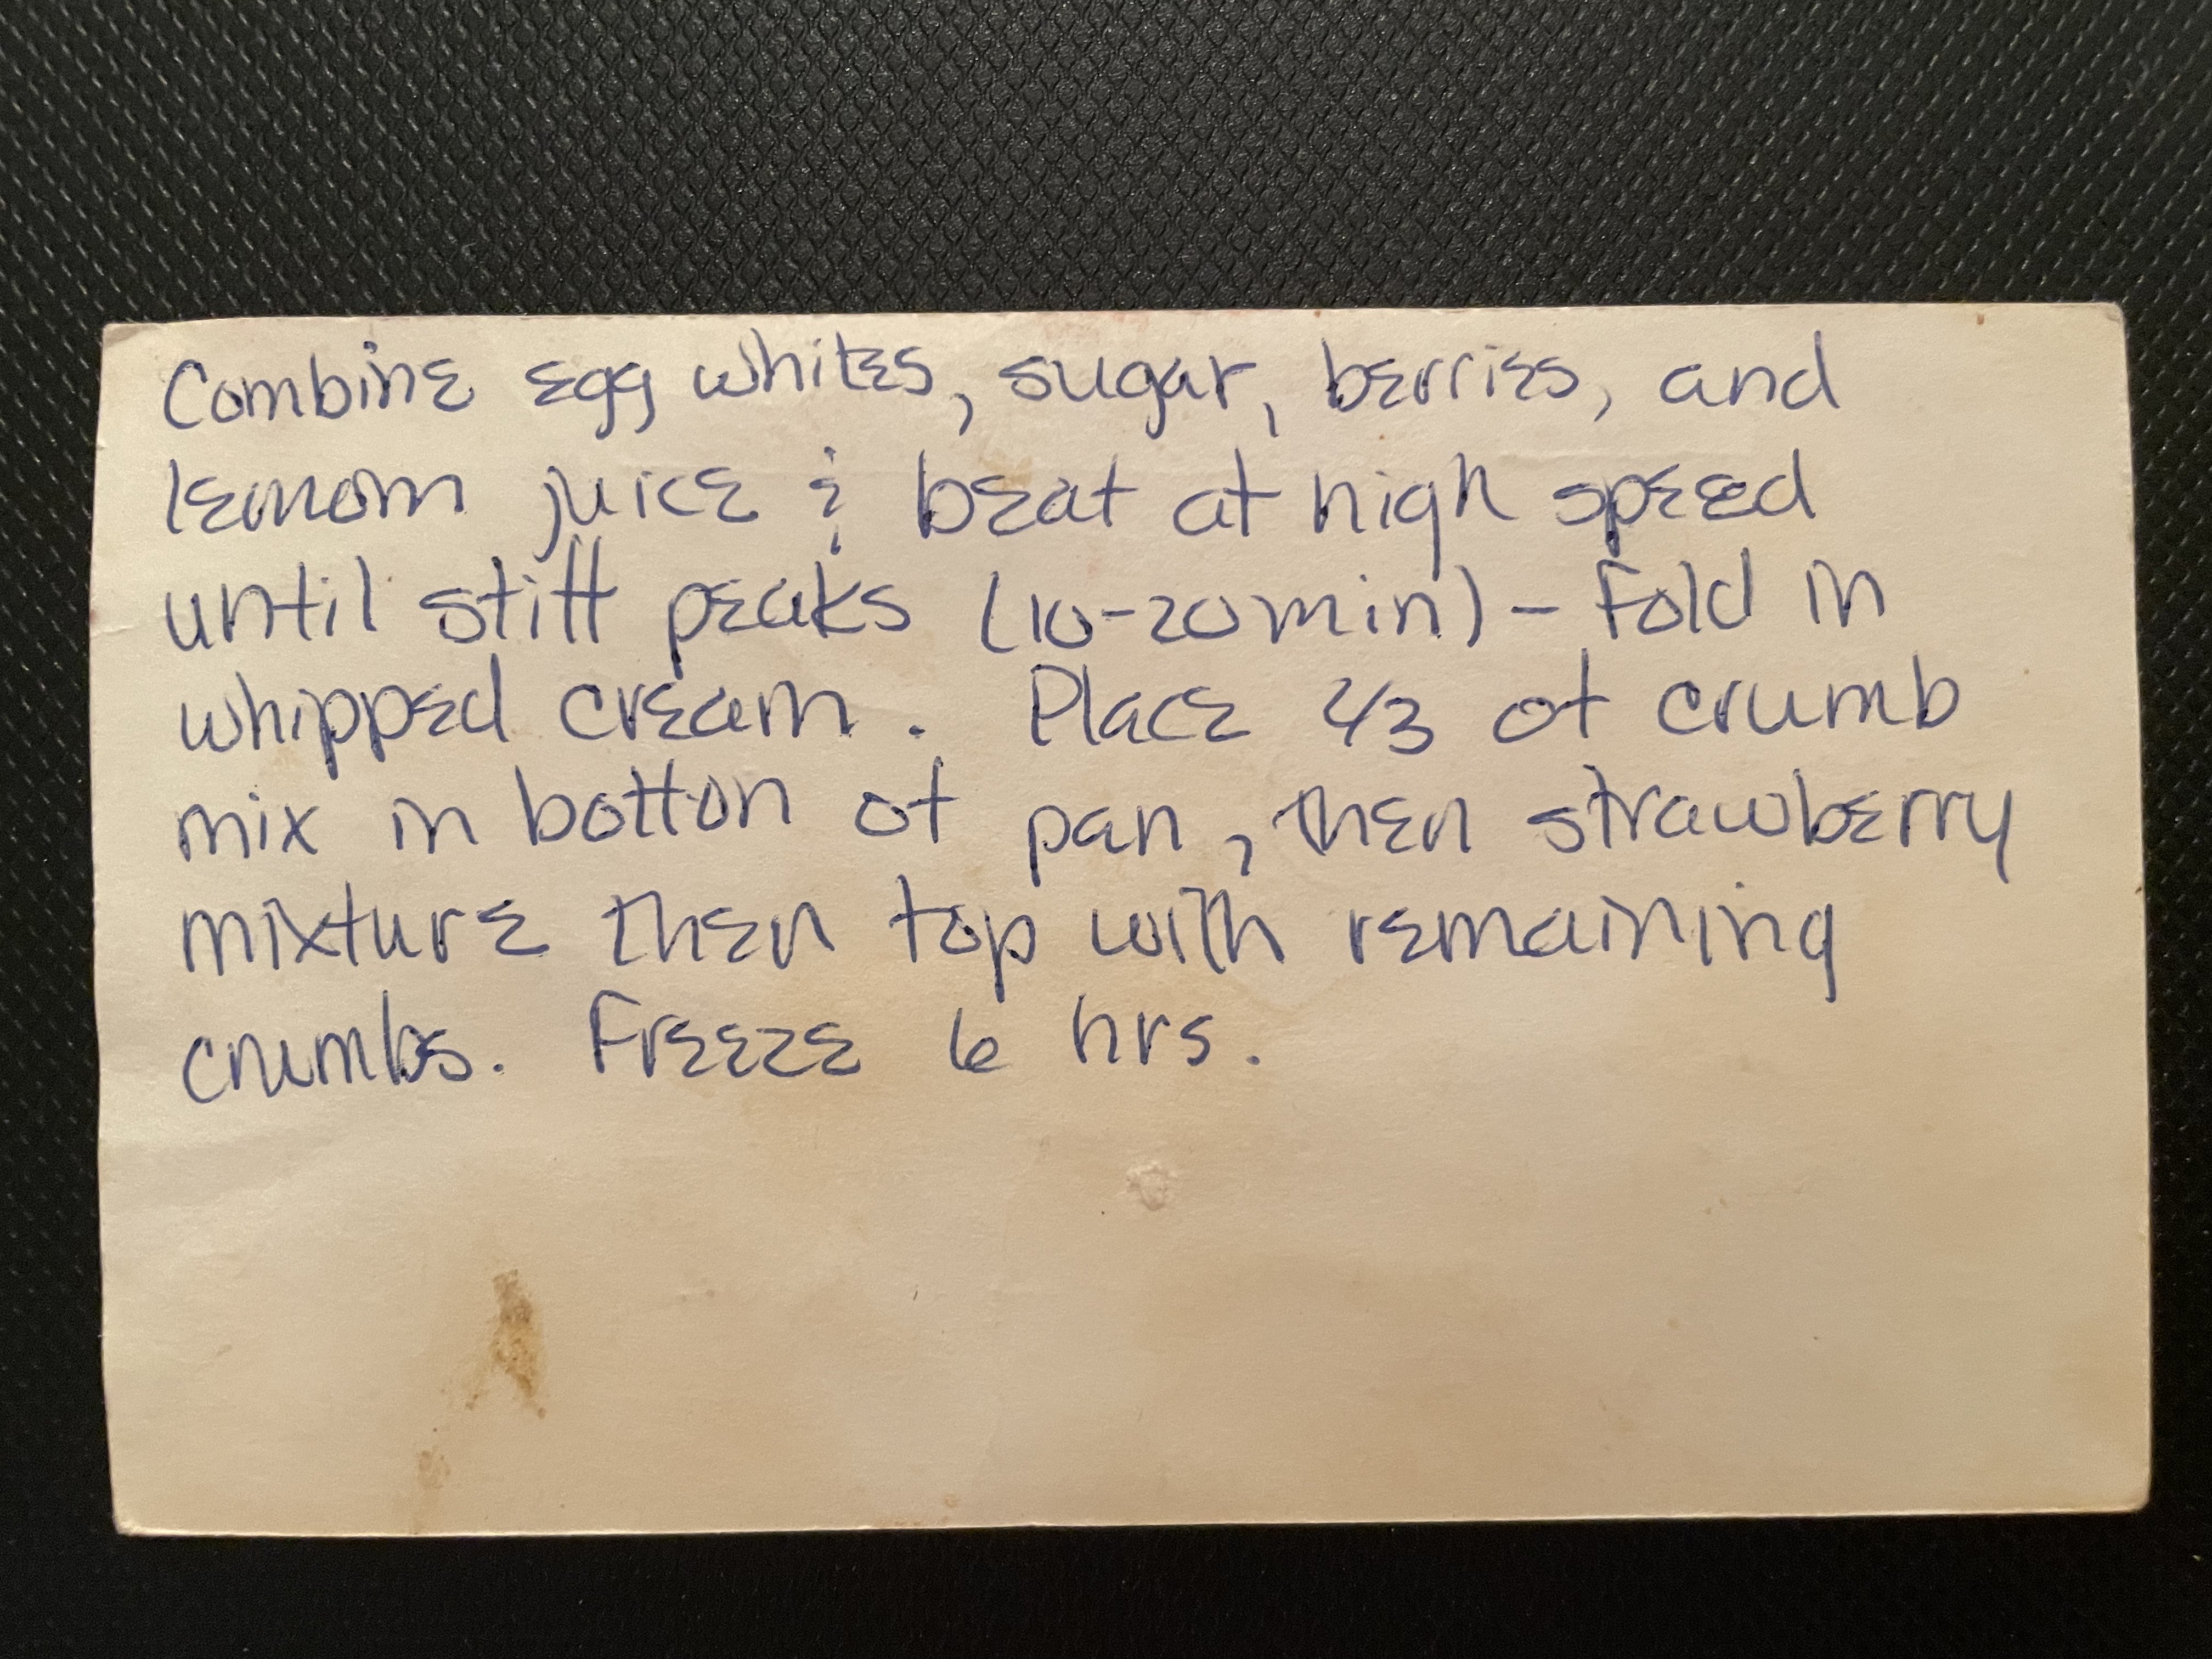 Combine egg whites, sugar, berries, and
lemom juice & beat at high speed
until stiff peaks (10-20min) - Fold in
whipped cream. Place 2/3 of crumb
mix in botton of pan, then strawberry
mixture then top with remaining
crumbs. Freeze 6 hrs.